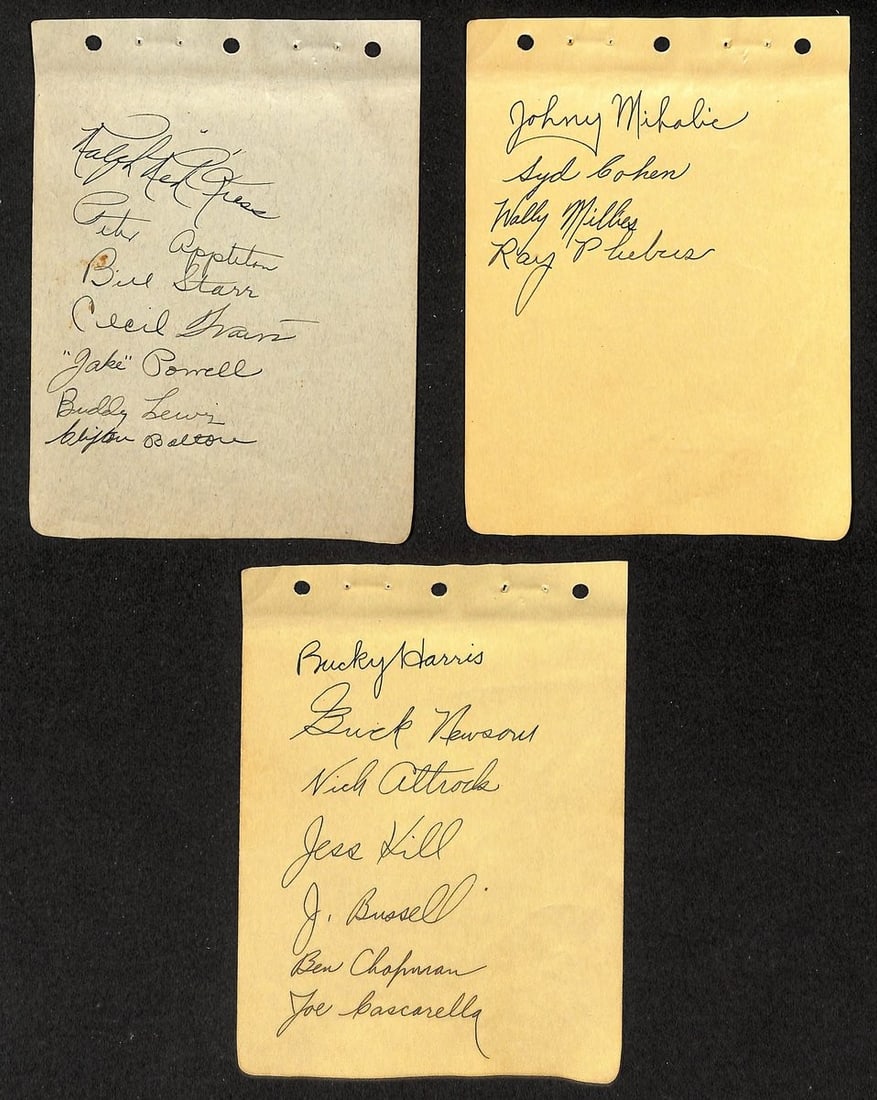 Ralph "Red" Kress
Pete Appleton
Bill Starr
Cecil Travis
"Jake" Powell
Buddy Lewis
Clifton Bolton
Johny Mihalic
Syd Cohen
Wally Millies
Ray Phebus
Bucky Harris
Buck Newsom
Nick Altrock
Jess Hill
J. Russell
Ben Chapman
Joe Cascarella